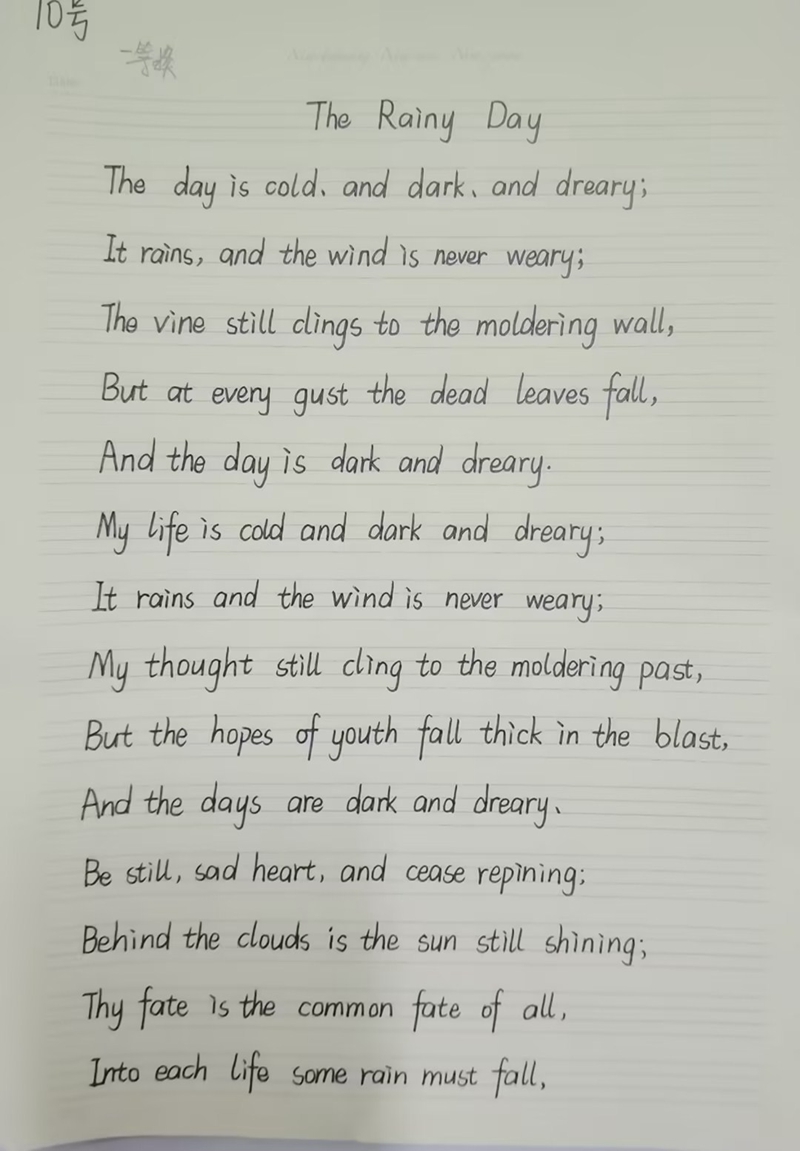 10号
一等奖
The Rainy Day
The day is cold、and dark、and dreary;
It rains, and the wind is never weary;
The vine still clings to the moldering wall,
But at every gust the dead leaves fall,
And the day is dark and dreary.
My life is cold and dark and dreary;
It rains and the wind is never weary;
My thought still cling to the moldering past,
But the hopes of youth fall thick in the blast,
And the days are dark and dreary、
Be still, sad heart, and cease repining;
Behind the clouds is the sun still shining;
Thy fate is the common fate of all,
Into each life some rain must fall,